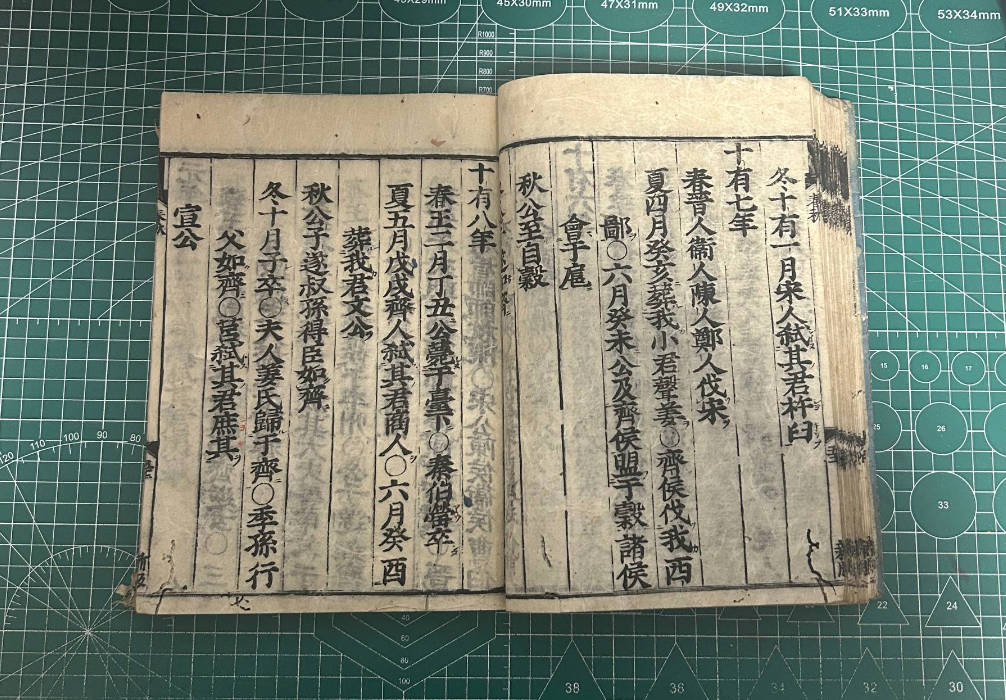 冬十有一月宋人弑其君杵臼
十有七年
春晉人衞人陳人鄭人伐宋
夏四月癸亥葬我小君聲姜○齊侯伐我西
鄙○六月癸未公及齊侯盟于穀諸侯
會于扈
秋公至自穀
十有八年
春王二月丁丑公薨于臺下○秦伯罃卒
夏五月戊戌齊人弑其君商人○六月癸酉
葬我君文公
秋公子遂叔孫得臣如齊
冬十月子卒○夫人姜氏歸于齊○季孫行
父如齊○莒弑其君庶其
宣公
45X30mm
47X31mm
49X32mm
51X33mm
53X34mm
R1000
R900
R800
R700
15
16
17
25
26
33
22
24
120
110
100
90
80
40
60
80
100
38
36
34
32
30